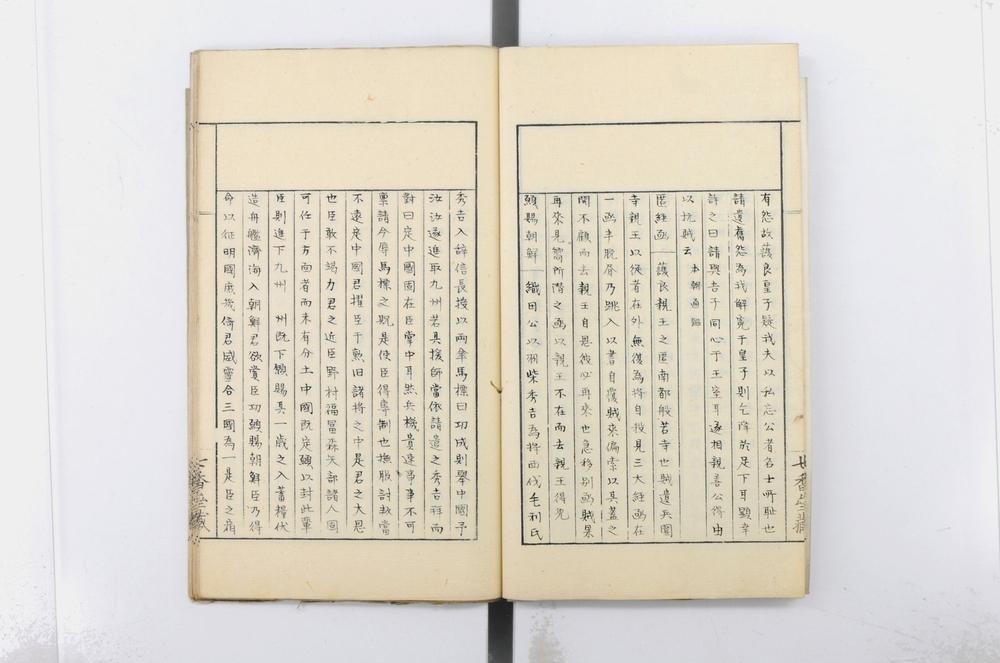 有怨故護良皇子疑我夫以私忘公者名士所耻也
請遺舊怨為我解寃于皇子則乞降於足下耳顕幸
許之曰請與吾子同心于王室耳遂相親善公得由
以抗賊云　本朝通鑑
匿経凾　護良親王之匿南都般若寺也賊遣兵圍
寺親王以従者在外無復為将自投見三大経凾在
一凾半脱脣乃跳入以書自覆賊来偏索以其蓋之
開不顧而去親王自思彼必再来也急移別凾賊果
再来見嚮所潜之凾以親王不在而去親王得免
願賜朝鮮　織田公以羽柴秀吉為将西伐毛利氏
秀吉入辞信長授以兩傘馬標曰功成則擧中國予
汝汝遂進取九州若其援師當依請遣之秀吉拜而
對曰定中國固在臣掌中耳然兵機貴速事事不可
禀請今辱馬標之貺是使臣得專制也撫服討叛當
不遠定中國君擢臣于熟旧諸将之中是君之大恩
也臣敢不竭力君之近臣野村福冨森矢部諸人固
可任于方面者而未有分土中國既定願以封此輩
臣則進下九州　州既下願賜其一歳之入蓄糧伏
造舟艦濟海入朝鮮君欲賞臣功願賜朝鮮臣乃得
命以征明國庶幾倚君威靈合三國為一是臣之宿